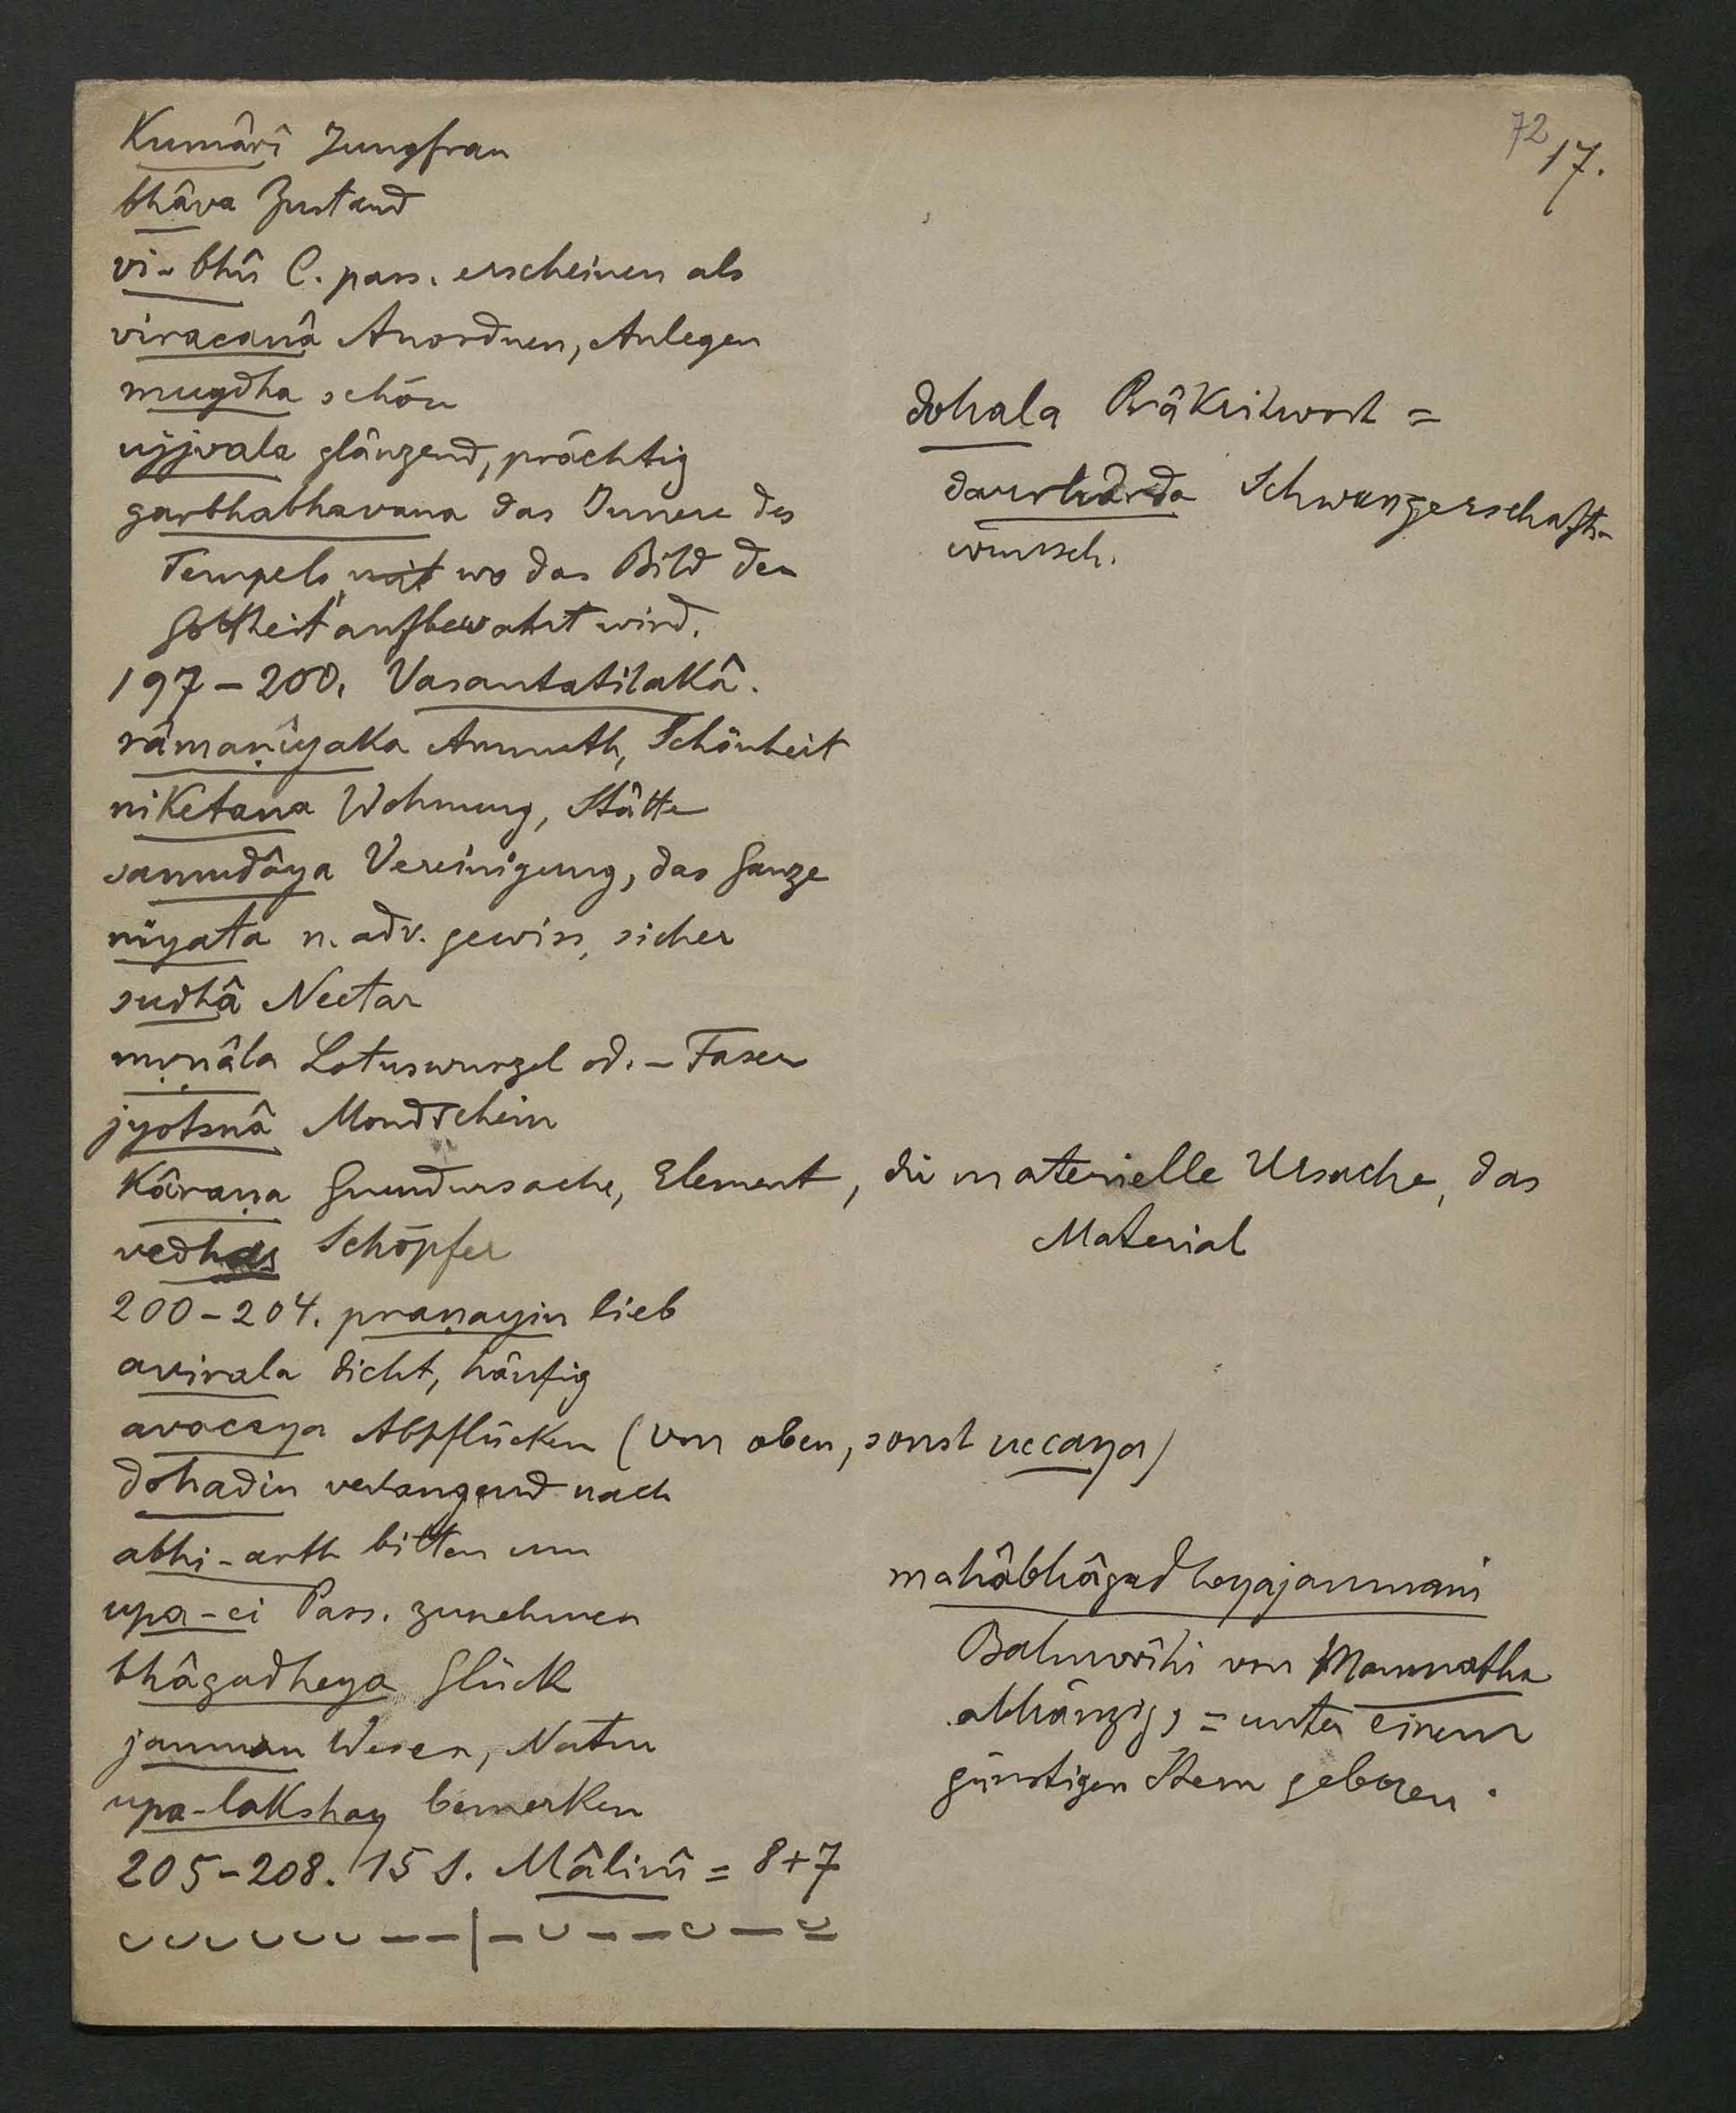 72
17.
Kumârî Jungfrau
bhâva Zustand
vi-bhû C. pass. erscheinen als
viracanâ Anordnen, Anlegen
mugdha schön
ujjvala glänzend, prächtig
garbhabhavana das Innere des
Tempels, mit wo das Bild der
Gottheit aufbewahrt wird.
197-200. Vasantatilakâ.
râmaṇîyaka Anmuth, Schönheit
niketana Wohnung, Stätte
samudâya Vereinigung, das Ganze
niyata n. adv. gewiss, sicher
sudhâ Nectar
mṛṇâla Lotuswurzel od. -Faser
jyotsnâ Mondschein
kâraṇa Grundursache, Element, die materielle Ursache, das
Material
vedhas Schöpfer
200-204. praṇayin lieb
avirala dicht, häufig
avacaya Abpflücken (von oben, sonst uccaya)
dohadin verlangend nach
abhi-arth bitten um
upa-ci Pass. zunehmen
bhâgadheya Glück
janman Wesen, Natur
upa-lakshay bemerken
205-208. 15 S. Mâlinî = 8+7
⏑⏑⏑⏑⏑⏑——|—⏑——⏑—⏓
dohala Prâkritwort =
daurhârda Schwangerschafts-
wunsch.
mahâbhâgadheyajanmani
Bahuvrîhi von Manmatha
abhängig, = unter einem
günstigen Stern geboren.